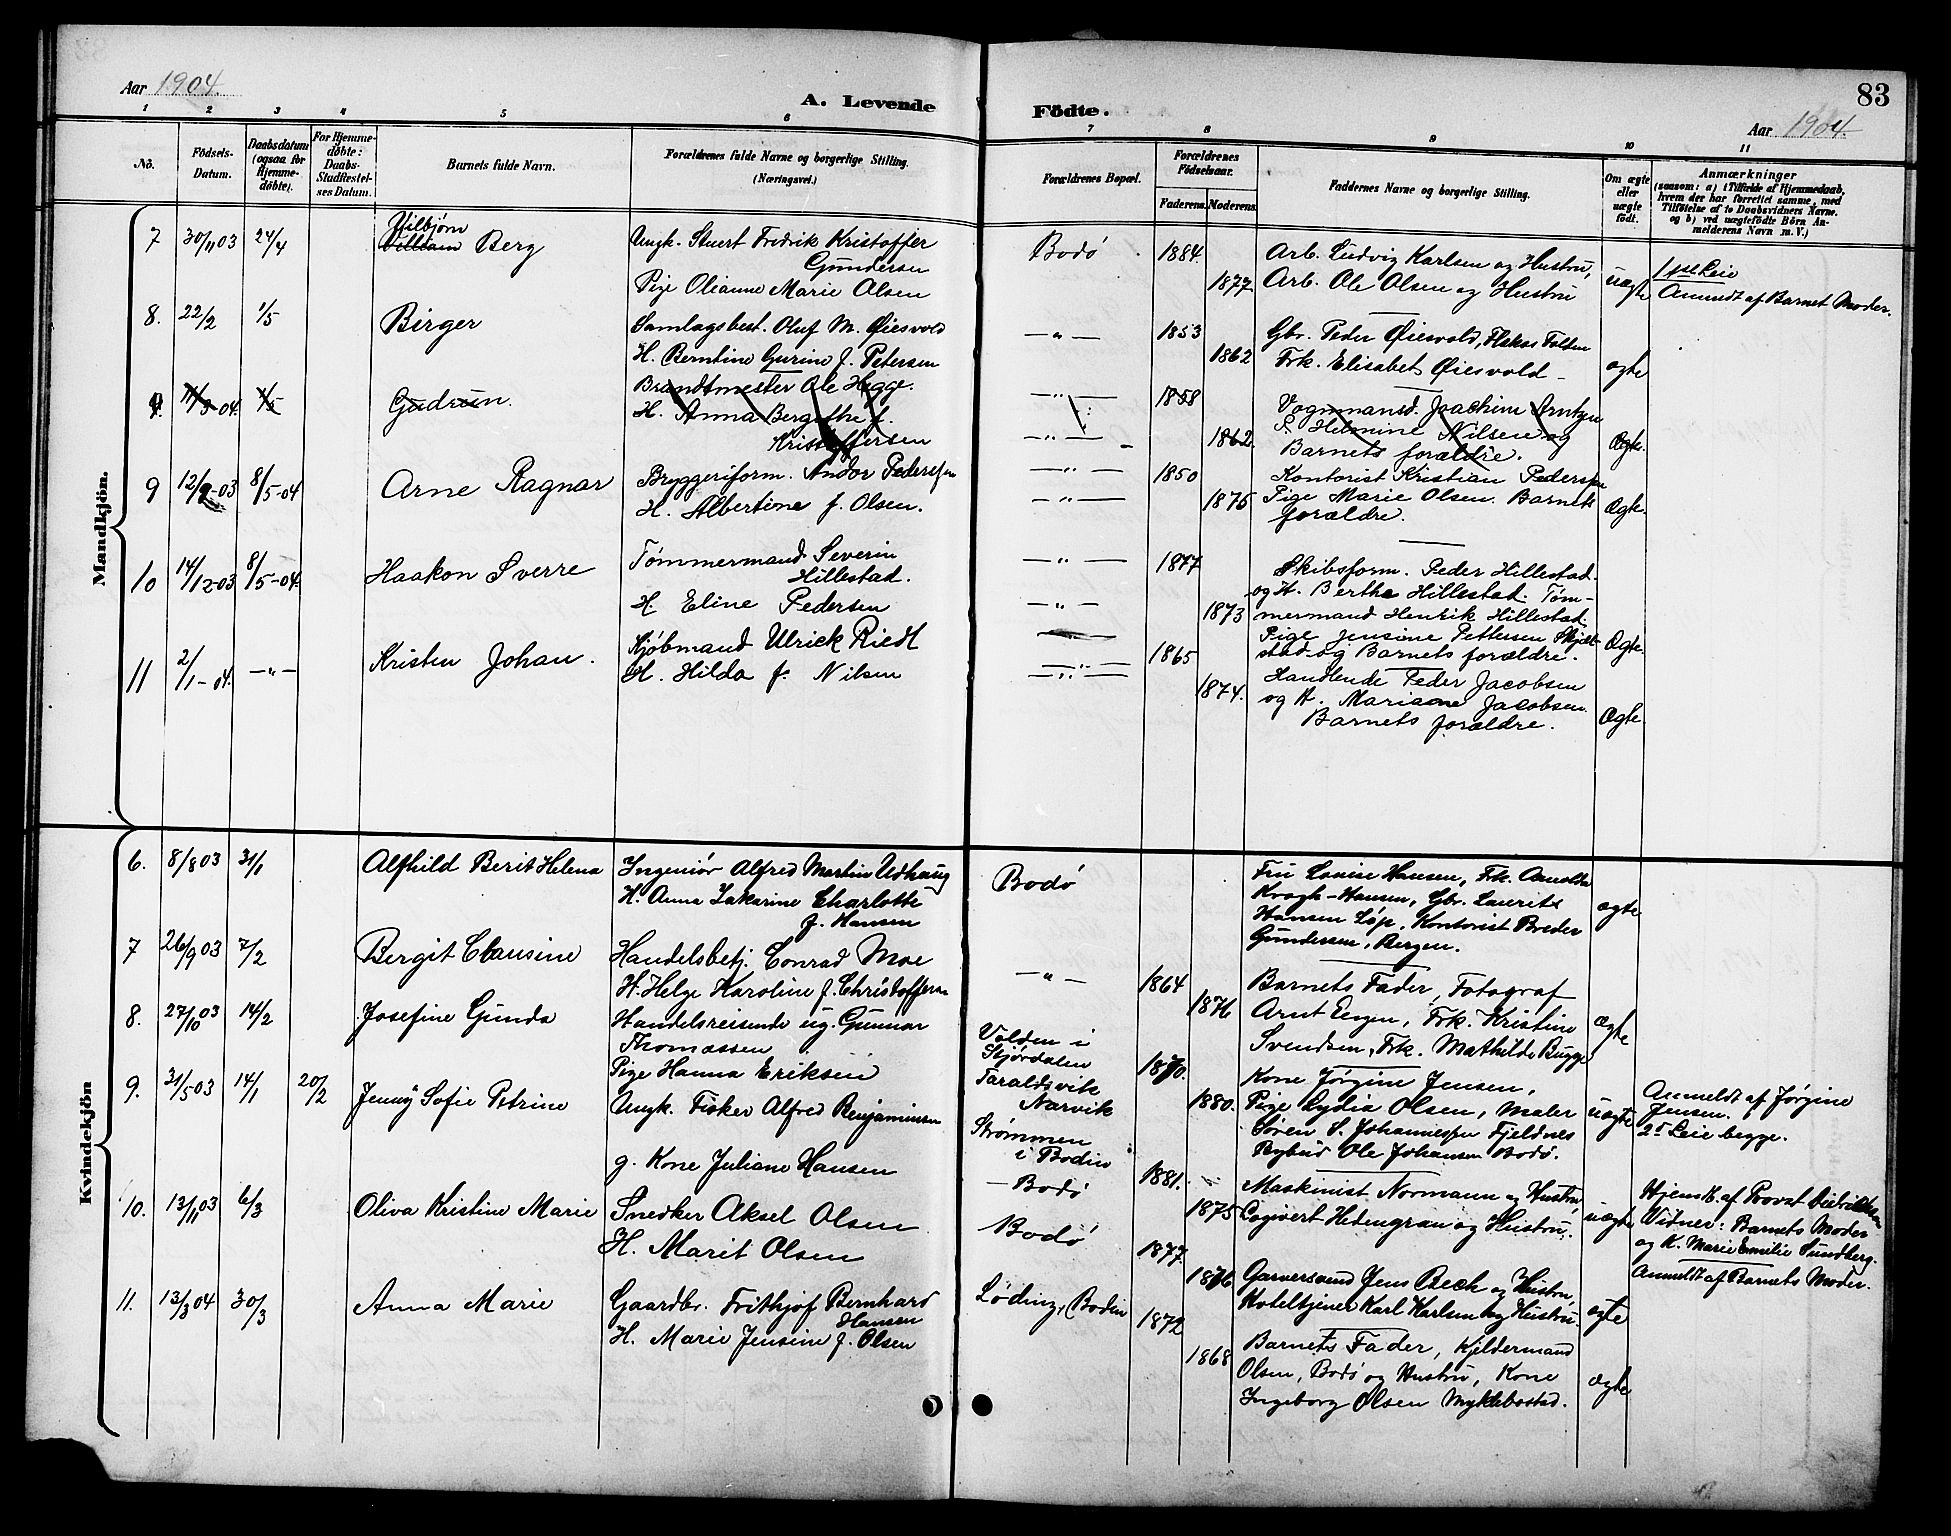 Aar 1904.
A. Levende
Födte.
83
Aar 1904.
1 2 3 4 5 6 7 8 9 10 11
No.
Födsels-
Datum.
Daabsdatum
(ogsaa for
Hjemme-
döbte).
For Hjemme-
döbte:
Daabs-
Stadfæstel-
ses Datum.
Barnets fulde Navn.
Forældrenes fulde Navne og borgerlige Stilling.
(Næringsvei.)
Forældrenes Bopæl.
Forældrenes
Födselsaar.
Faderens.
Moderens.
Faddernes Navne og borgerlige Stilling.
Om ægte
eller
uægte
født.
Anmærkninger
(saasom: a) i Tilfælde af Hjemmedaab,
hvem der har forrettet samme, med
Tilföielse af to Daabsvidners Navne,
og b) ved uægtefödte Börn An-
melderens Navn m. V.)
Mandkjön.
7 30/11 03 24/4
Hilbjørn
Villiam Berg
Ungk. Stuert Fredrik Kristoffer
Gundersen
Pige Olianne Marie Olsen
Bodø
1884.
1877.
Arb. Ludvig Karlsen og Hustru,
Arb. Ole Olsen og Hustru
uægte
1ste Leie
Anmeldt af Barnet Moder.
8. 22/2 1/5
Birger
Samlagsbest. Oluf M. Øiesvold
H. Berntine Gurine f. Petersen
— " —
1853
1862
Gbr. Peder Øiesvold,
Frk. Elisabet Øiesvold
ægte
9. 11/3 04. 1/5
Gudrun.
Brandtmester Ole Hegge.
H. Anna Bergithe f.
Kristoffersen
— " —
— " —
1858
1862.
Vognmansd. Joachim Arntzen
P. Helmine Nilsen og
Barnets forældre.
Ægte.
9 12/9-03 8/5-04
Arne Ragnar
Bryggeriform. Andor Pedersen
H. Albertine f. Olsen.
— " —
— " —
1850
1875
Kontorist Kristian Pedersen
Pige Marie Olsen. Barnets
forældre.
Ægte.
10 14/12-03 8/5-04.
Haakon Sverre
Tømmermand Severin
Hillestad.
H. Eline Pedersen
— " —
— " —
1877
1873
Skibsform. Peder Hillestad.
og H. Berthe Hillestad. Tøm-
mermand Henrik Hillestad
Pige Jensine Pettersen Skjæl-
stad og Barnets forældre.
Ægte.
11 2/1-04. — " —
Kristen Johan.
Kjøbmand Ulrick Riedl
H. Hilda f. Nilsen
— " —
1865
1874.
Handlende Peder Jacobsen
og H. Mariane Jacobsen.
Barnets forældre.
Ægte.
Kvindekjön
6. 8/8 03 31/1
Alfhild Berit Helena
Ingeniør Alfred Martin Udhaug
H. Anna Zakarine Charlotte
f. Hansen
Bodø
Fru Louise Hansen, Frk. Arnolda
Krogh-Hansen, Gbr. Laurits
Hansen Løp, Kontorist Breder
Gundersen, Bergen.
ægte
7 26/9 03 7/2
Bergit Clausine
Handelsbetj. Conrad Moe
H. Helge Karoline f. Christoffersen
— " —
1864
1876
Barnets Fader, Fotograf
Arnt Engen, Frk. Kristine
Svendsen, Frk. Mathilde Bugge
ægte
8. 27/10 03 14/2
Josefine Gunda
Handelsreisende ug. Gunnar
Thomassen
Pige Hanna Eriksen
Volden i
Stjørdalen
Taraldsvik
Narvik
1870.
1880.
Kone Jørgine Jensen,
Pige Lydia Olsen, Maler
Søren S. Johannessen Fjeldnes
Rybud Ole Johansen Bodø.
uægte
Anmeldt af Jørgine
Jensen.
2det Leie begge.
9. 31/5 03 14/1 20/2
Jenny Sofie Petrine
Ungk. Fisker Alfred Benjaminsen
g. Kone Juliane Hansen
Strømmen
i Bodin
— Bodø
1881.
1875
Maskinist Normann og Hustru,
Logivert Hetengran og Hustru.
uægte
Hjem. K. af Provst
Vidner: Barnets Moder
og K. Marie Emilie Sundberg.
Anmeldt af Barnets Moder.
10. 13/11 03 6/3
Oliva Kristine Marie
Snedker Aksel Olsen
H. Marit Olsen
Bodø
1877.
1876
Garversvend Jens Beck og Hustru,
Hoteltjener Karl Karlsen og Hustru.
ægte
11. 13/3 04 30/3
Anna Marie
Gaardbr. Frithjof Bernhard
Hansen
H. Marie Jensine f. Olsen
Løding, Bodin
1872
1868
Barnets Fader, Kjeldermand
Olsen, Bodø og Hustru, Kone
Ingeborg Olsen Myklebostad.
ægte